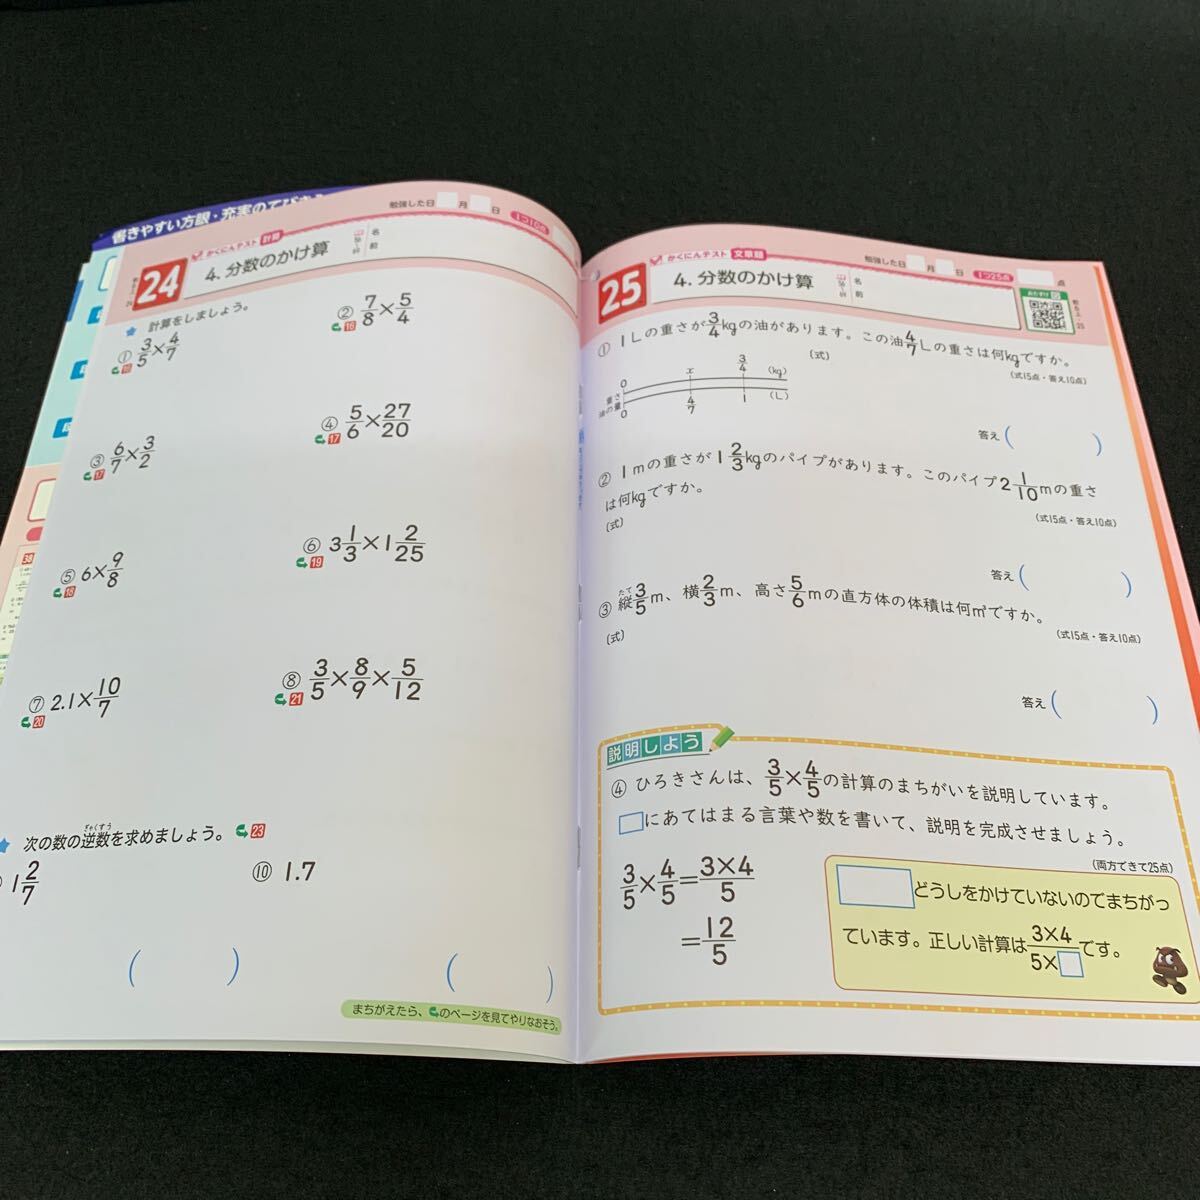 書きやすい方眼・充実のてびき
勉強した日 月 日
1つ10点
24
かくにんテスト 計算
4. 分数のかけ算
名前
計算をしましょう。
① 3/5×4/7
16
② 7/8×5/4
16
③ 6/7×3/2
17
④ 5/6×27/20
17
⑤ 6×9/8
18
⑥ 3 1/3×1 2/25
19
⑦ 2.1×10/7
20
⑧ 3/5×8/9×5/12
21
次の数の逆数を求めましょう。 23
ぎゃくすう
1 2/7
⑩ 1.7
( )
( )
まちがえたら、のページを見てやりなおそう。
勉強した日 月 日
1つ25点 点
25
かくにんテスト 文章題
4. 分数のかけ算
名前
① 1Lの重さが3/4kgの油があります。この油4/7Lの重さは何kgですか。
(式)
(式15点・答え10点)
0 x 3/4 (kg)
重さ
油の量
0 4/7 1 (L)
答え( )
② 1mの重さが1 2/3kgのパイプがあります。このパイプ2 1/10mの重さ
は何kgですか。
(式15点・答え10点)
(式)
答え( )
たて
③ 縦3/5m、横2/3m、高さ5/6mの直方体の体積は何m³ですか。
(式)
(式15点・答え10点)
答え( )
説明しよう
④ ひろきさんは、3/5×4/5の計算のまちがいを説明しています。
□にあてはまる言葉や数を書いて、説明を完成させましょう。
(両方できて25点)
3/5×4/5=3×4/5
=12/5
□どうしをかけていないのでまちがっ
ています。正しい計算は3×4/5×□です。